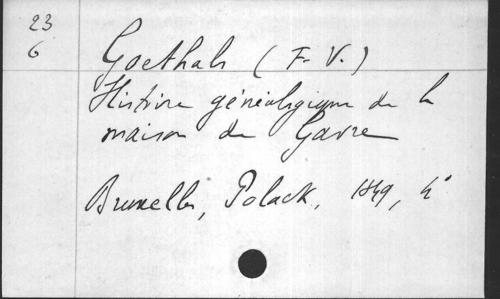 23
6
Goethals (F. V.)
Histoire généalogique de la
maison de Gavre
Bruxelles, Polack, 1849, 4°